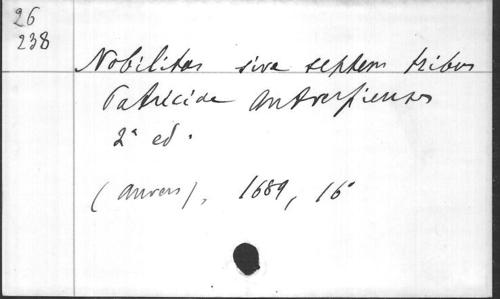 26
238
Nobilitas sive septem tribus
Patricide Antverpienses
2ª ed.
(Anvers), 1689, 16º